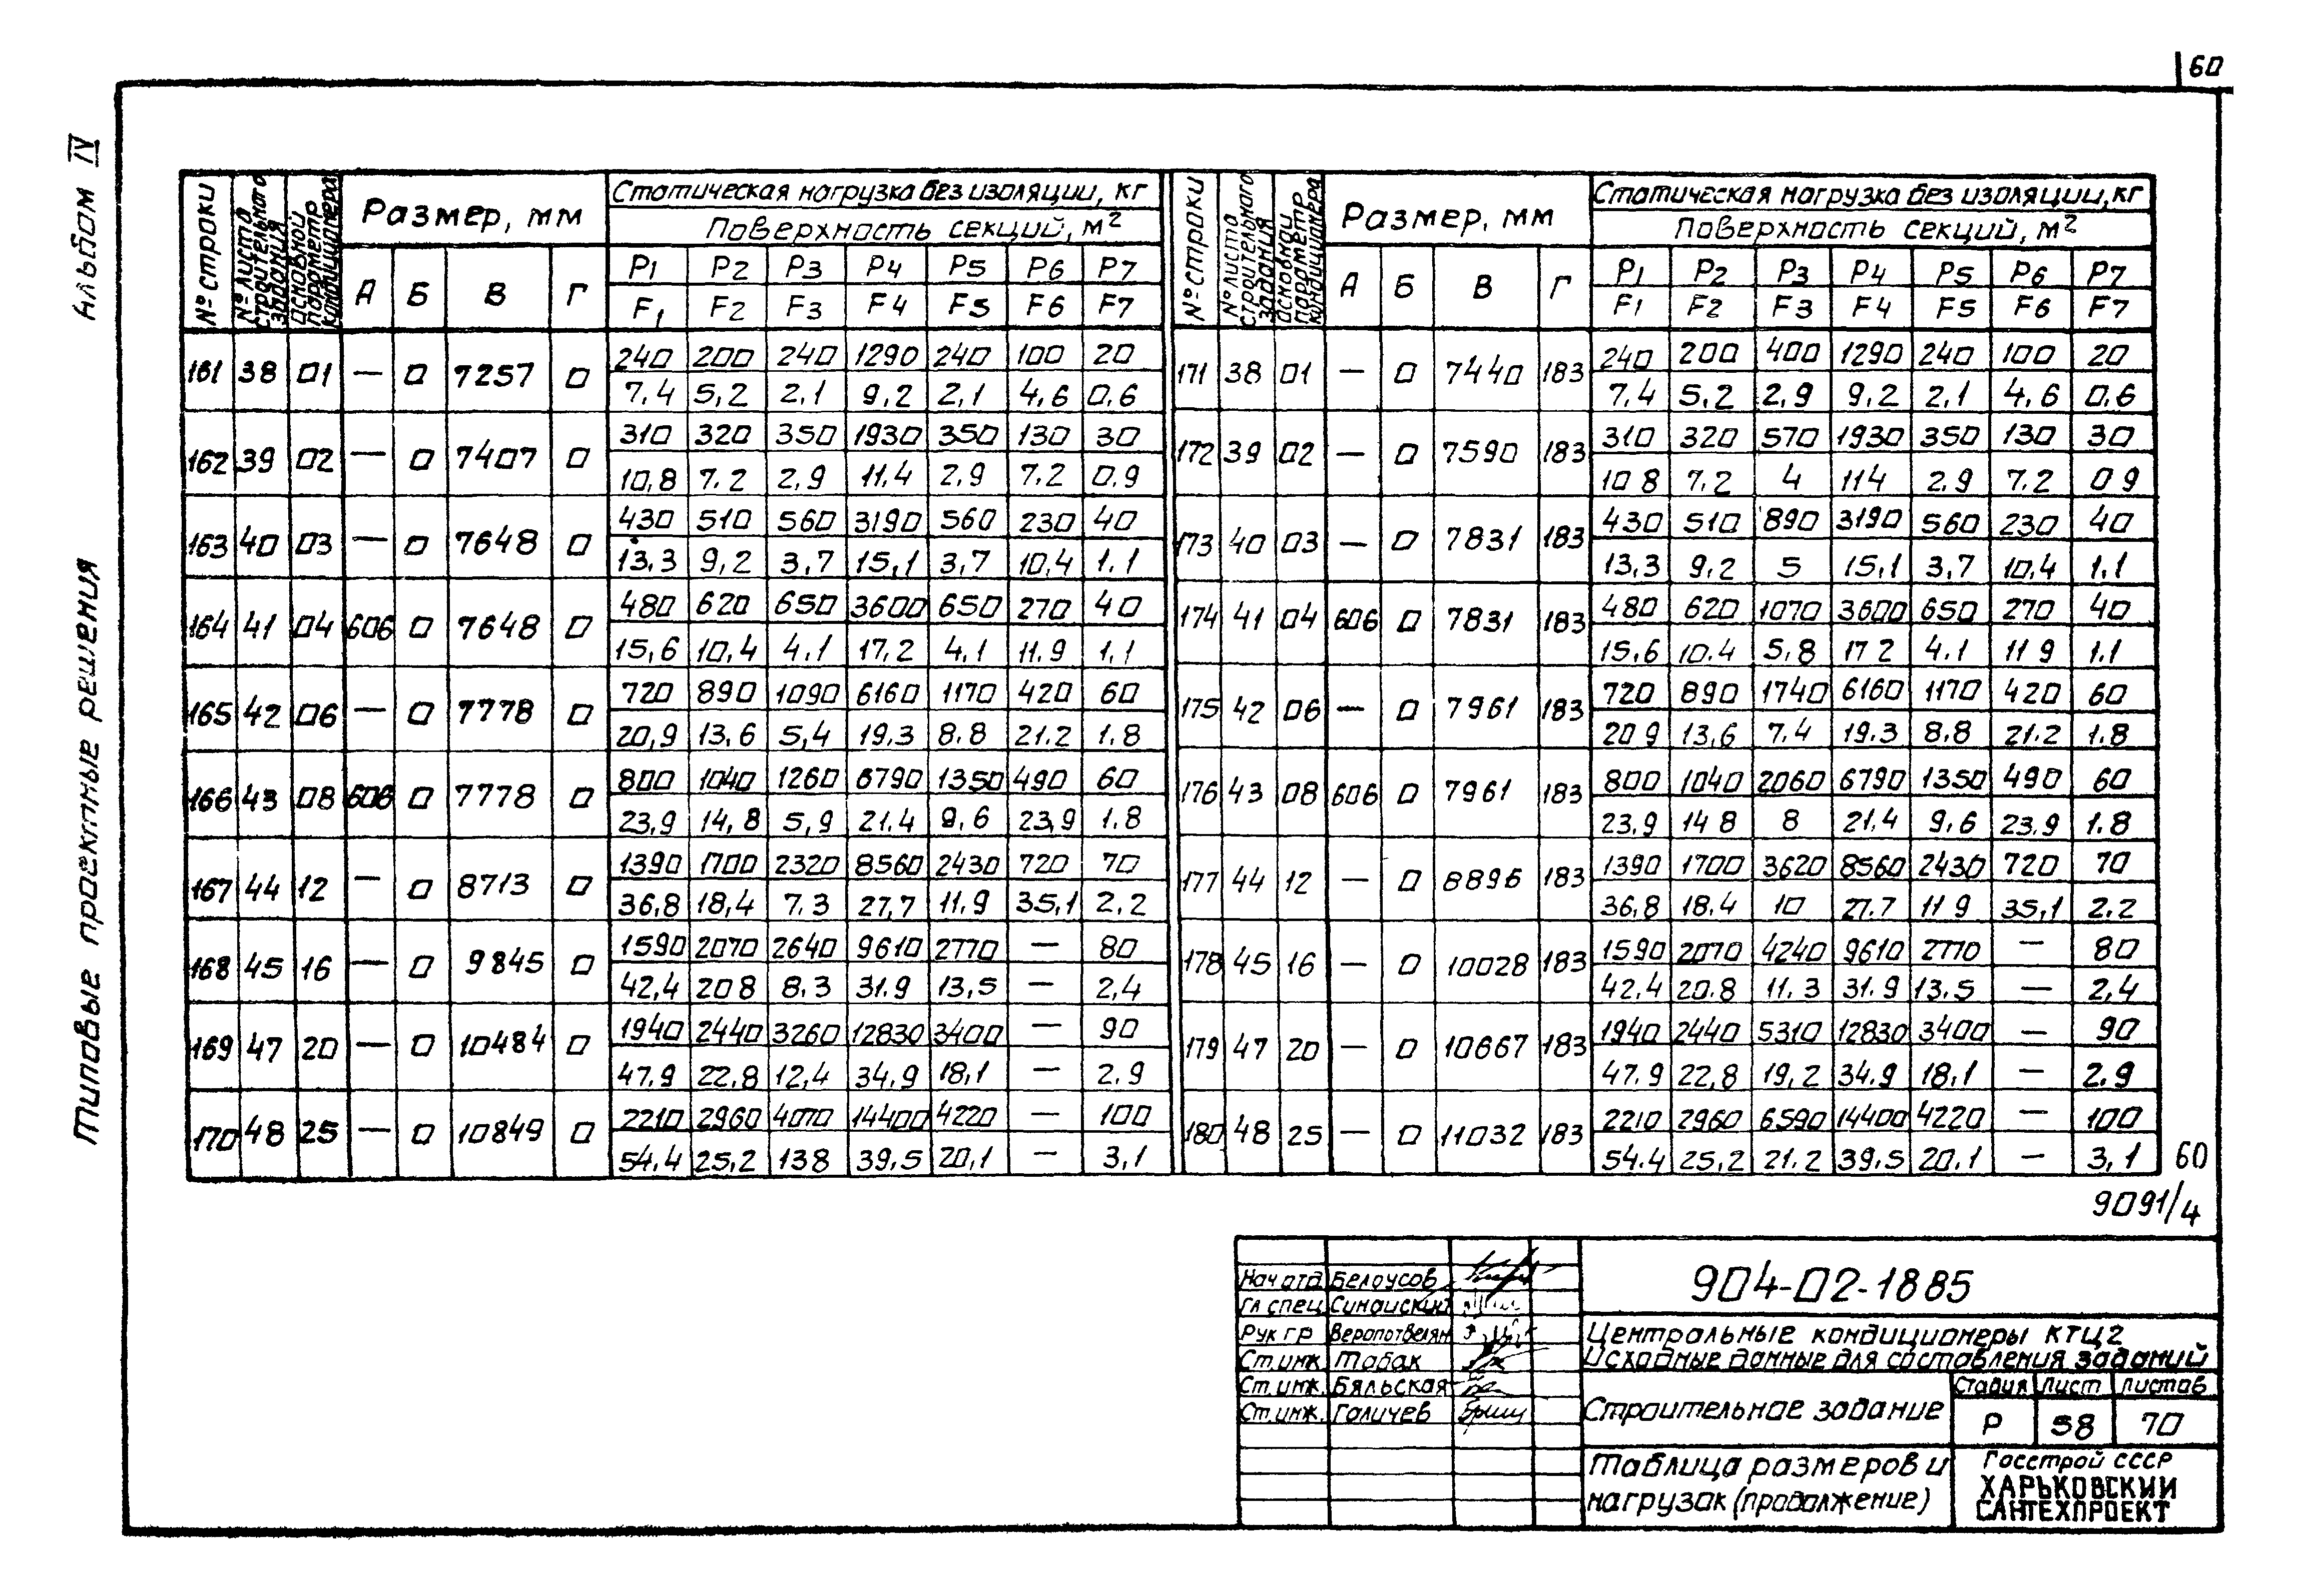 60
Альбом IV
Типовые проектные решения
№ строки | № листа строительного задания | Основной параметр кондиционера | Размер, мм | Статическая нагрузка без изоляции, кг
Поверхность секций, м²
А | Б | В | Г | P1 | P2 | P3 | P4 | P5 | P6 | P7
F1 | F2 | F3 | F4 | F5 | F6 | F7
161 | 38 | 01 | — | 0 | 7257 | 0 | 240 | 200 | 240 | 1290 | 240 | 100 | 20
7.4 | 5,2 | 2,1 | 9,2 | 2,1 | 4,6 | 0,6
162 | 39 | 02 | — | 0 | 7407 | 0 | 310 | 320 | 350 | 1930 | 350 | 130 | 30
10,8 | 7.2 | 2,9 | 11,4 | 2,9 | 7,2 | 0,9
163 | 40 | 03 | — | 0 | 7648 | 0 | 430 | 510 | 560 | 3190 | 560 | 230 | 40
13,3 | 9,2 | 3,7 | 15,1 | 3,7 | 10,4 | 1.1
164 | 41 | 04 | 606 | 0 | 7648 | 0 | 480 | 620 | 650 | 3600 | 650 | 270 | 40
15,6 | 10,4 | 4.1 | 17,2 | 4,1 | 11.9 | 1,1
165 | 42 | 06 | — | 0 | 7778 | 0 | 720 | 890 | 1090 | 6160 | 1170 | 420 | 60
20,9 | 13,6 | 5,4 | 19,3 | 8.8 | 21.2 | 1.8
166 | 43 | 08 | 606 | 0 | 7778 | 0 | 800 | 1040 | 1260 | 6790 | 1350 | 490 | 60
23,9 | 14,8 | 5,9 | 21.4 | 9,6 | 23,9 | 1.8
167 | 44 | 12 | — | 0 | 8713 | 0 | 1390 | 1700 | 2320 | 8560 | 2430 | 720 | 70
36,8 | 18,4 | 7.3 | 27,7 | 11.9 | 35,1 | 2,2
168 | 45 | 16 | — | 0 | 9845 | 0 | 1590 | 2070 | 2640 | 9610 | 2770 | — | 80
42,4 | 20 8 | 8.3 | 31.9 | 13,5 | — | 2,4
169 | 47 | 20 | — | 0 | 10484 | 0 | 1940 | 2440 | 3260 | 12830 | 3400 | — | 90
47.9 | 22,8 | 12,4 | 34,9 | 18,1 | — | 2.9
170 | 48 | 25 | — | 0 | 10849 | 0 | 2210 | 2960 | 4070 | 14400 | 4220 | — | 100
54,4 | 25,2 | 13 8 | 39,5 | 20,1 | — | 3,1
№ строки | № листа строительного задания | Основной параметр кондиционера | Размер, мм | Статическая нагрузка без изоляции, кг
Поверхность секций, м²
А | Б | В | Г | P1 | P2 | P3 | P4 | P5 | P6 | P7
F1 | F2 | F3 | F4 | F5 | F6 | F7
171 | 38 | 01 | — | 0 | 7440 | 183 | 240 | 200 | 400 | 1290 | 240 | 100 | 20
7.4 | 5,2 | 2,9 | 9,2 | 2,1 | 4,6 | 0,6
172 | 39 | 02 | — | 0 | 7590 | 183 | 310 | 320 | 570 | 1930 | 350 | 130 | 30
10 8 | 7,2 | 4 | 11 4 | 2.9 | 7.2 | 0 9
173 | 40 | 03 | — | 0 | 7831 | 183 | 430 | 510 | 890 | 3190 | 560 | 230 | 40
13,3 | 9,2 | 5 | 15,1 | 3,7 | 10,4 | 1.1
174 | 41 | 04 | 606 | 0 | 7831 | 183 | 480 | 620 | 1070 | 3600 | 650 | 270 | 40
15,6 | 10.4 | 5,8 | 17 2 | 4.1 | 11 9 | 1.1
175 | 42 | 06 | — | 0 | 7961 | 183 | 720 | 890 | 1740 | 6160 | 1170 | 420 | 60
20 9 | 13,6 | 7.4 | 19.3 | 8.8 | 21.2 | 1.8
176 | 43 | 08 | 606 | 0 | 7961 | 183 | 800 | 1040 | 2060 | 6790 | 1350 | 490 | 60
23,9 | 14 8 | 8 | 21,4 | 9,6 | 23.9 | 1.8
177 | 44 | 12 | — | 0 | 8896 | 183 | 1390 | 1700 | 3620 | 8560 | 2430 | 720 | 70
36,8 | 18.4 | 10 | 27.7 | 11 9 | 35,1 | 2.2
178 | 45 | 16 | — | 0 | 10028 | 183 | 1590 | 2070 | 4240 | 9610 | 2770 | — | 80
42.4 | 20.8 | 11.3 | 31.9 | 13.5 | — | 2,4
179 | 47 | 20 | — | 0 | 10667 | 183 | 1940 | 2440 | 5310 | 12830 | 3400 | — | 90
47.9 | 22,8 | 19,2 | 34.9 | 18.1 | — | 2.9
180 | 48 | 25 | — | 0 | 11032 | 183 | 2210 | 2960 | 6590 | 14400 | 4220 | — | 100
54.4 | 25,2 | 21.2 | 39.5 | 20.1 | — | 3,1
60
9091/4
904-02-18 85
Нач отд Белоусов
Гл спец Синайский
Рук гр
Ст. инж. Табак
Ст. инж. Бяльская
Ст. инж. Галичев
Центральные кондиционеры КТЦ2
Исходные данные для составления заданий
Строительное задание
Стадия | Лист | Листов
Р | 58 | 70
Таблица размеров и
нагрузок (продолжение)
Госстрой СССР
ХАРЬКОВСКИЙ
САНТЕХПРОЕКТ